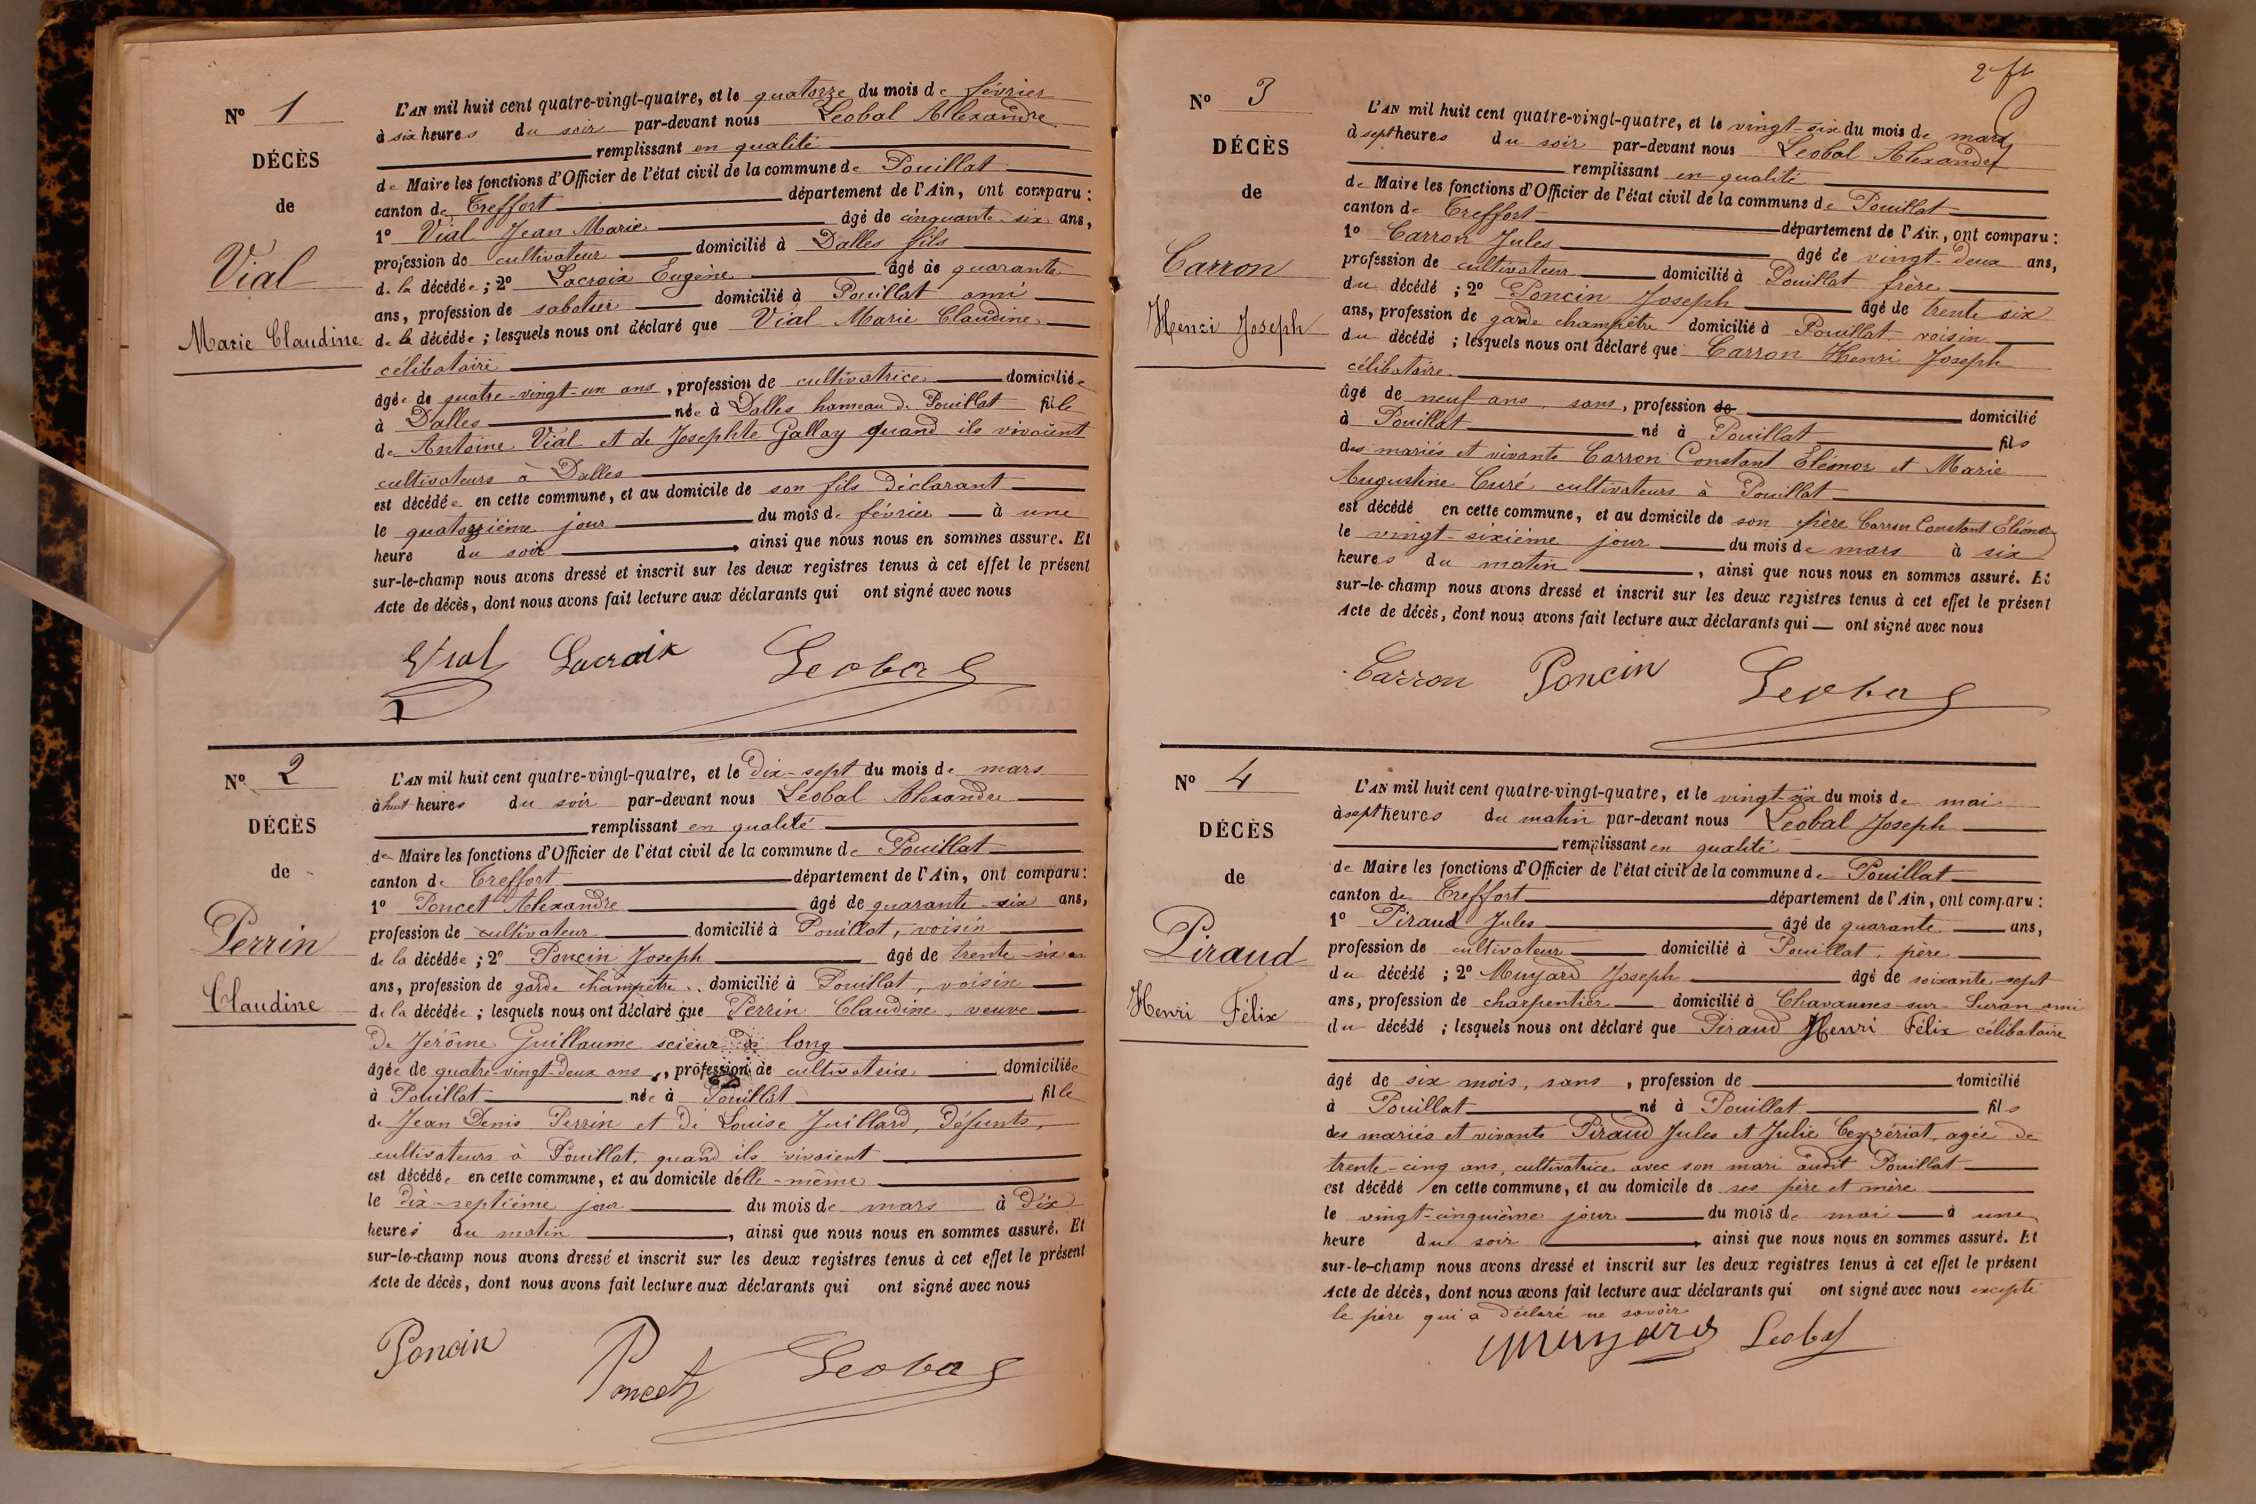 N° 1
DÉCÈS
de
Vial
Marie Claudine
L'AN mil huit cent quatre-vingt-quatre, et le quatorze du mois de février
à six heures du soir par-devant nous Léobal Alexandre
remplissant en qualité
de Maire les fonctions d'Officier de l'état civil de la commune de Pouillat
canton de Treffort département de l'Ain, ont comparu :
1° Vial Jean Marie âgé de cinquante-six ans,
profession de cultivateur domicilié à Dalles fils
de la décédée ; 2° Lacroix Eugène âgé de quarante
ans, profession de sabotier domicilié à Pouillat ami
de la décédée ; lesquels nous ont déclaré que Vial Marie Claudine
célibataire
âgée de quatre-vingt-un ans, profession de cultivatrice domiciliée
à Dalles née à Dalles hameau de Pouillat fille
de Antoine Vial et de Josephte Gallay quand ils vivaient
cultivateurs à Dalles
est décédée en cette commune, et au domicile de son fils déclarant
le quatorzième jour du mois de février à une
heure du soir, ainsi que nous nous en sommes assuré. Et
sur-le-champ nous avons dressé et inscrit sur les deux registres tenus à cet effet le présent
Acte de décès, dont nous avons fait lecture aux déclarants qui ont signé avec nous
Vial Lacroix Leobal
N° 2
DÉCÈS
de
Perrin
Claudine
L'AN mil huit cent quatre-vingt-quatre, et le dix-sept du mois de mars
à huit heures du soir par-devant nous Léobal Alexandre
remplissant en qualité
de Maire les fonctions d'Officier de l'état civil de la commune de Pouillat
canton de Treffort département de l'Ain, ont comparu :
1° Poncet Alexandre âgé de quarante-six ans,
profession de cultivateur domicilié à Pouillat, voisin
de la décédée ; 2° Poncin Joseph âgé de trente-six
ans, profession de garde champêtre domicilié à Pouillat, voisin
de la décédée ; lesquels nous ont déclaré que Perrin Claudine, veuve
de Jérôme Guillaume scieur de long
âgée de quatre-vingt-deux ans, profession de cultivatrice domiciliée
à Pouillat née à Pouillat fille
de Jean Denis Perrin et de Louise Juillard, défunts,
cultivateurs à Pouillat quand ils vivaient
est décédée en cette commune, et au domicile d'elle-même
le dix-septième jour du mois de mars à dix
heures du matin, ainsi que nous nous en sommes assuré. Et
sur-le-champ nous avons dressé et inscrit sur les deux registres tenus à cet effet le présent
Acte de décès, dont nous avons fait lecture aux déclarants qui ont signé avec nous
Poncin Poncet Leobal
N° 3
DÉCÈS
de
Carron
Henri Joseph
L'AN mil huit cent quatre-vingt-quatre, et le vingt-six du mois de mars
à sept heures du soir par-devant nous Léobal Alexandre
remplissant en qualité
de Maire les fonctions d'Officier de l'état civil de la commune de Pouillat
canton de Treffort département de l'Ain, ont comparu :
1° Carron Jules âgé de vingt-deux ans,
profession de cultivateur domicilié à Pouillat frère
du décédé ; 2° Poncin Joseph âgé de trente six
ans, profession de garde champêtre domicilié à Pouillat voisin
du décédé ; lesquels nous ont déclaré que Carron Henri Joseph
célibataire
âgé de neuf ans, sans, profession de domicilié
à Pouillat né à Pouillat fils
des mariés et vivants Carron Constant Éléonor et Marie
Augustine Curé cultivateurs à Pouillat
est décédé en cette commune, et au domicile de son père Carron Constant Eléonor
le vingt-sixième jour du mois de mars à six
heures du matin, ainsi que nous nous en sommes assuré. Et
sur-le-champ nous avons dressé et inscrit sur les deux registres tenus à cet effet le présent
Acte de décès, dont nous avons fait lecture aux déclarants qui ont signé avec nous
Carron Poncin Leobal
N° 4
DÉCÈS
de
Piraud
Henri Félix
L'AN mil huit cent quatre-vingt-quatre, et le vingt-six du mois de mai
à sept heures du matin par-devant nous Léobal Joseph
remplissant en qualité
de Maire les fonctions d'Officier de l'état civil de la commune de Pouillat
canton de Treffort département de l'Ain, ont comparu :
1° Piraud Jules âgé de quarante ans,
profession de cultivateur domicilié à Pouillat, père
du décédé ; 2° Muyard Joseph âgé de soixante-sept
ans, profession de charpentier domicilié à Chavannes-sur-Suran ami
du décédé ; lesquels nous ont déclaré que Piraud Henri Félix célibataire
âgé de six mois, sans, profession de domicilié
à Pouillat né à Pouillat fils
des mariés et vivants Piraud Jules et Julie Ceyzériat, agée de
trente-cinq ans, cultivatrice avec son mari audit Pouillat
est décédé en cette commune, et au domicile de ses père et mère
le vingt-cinquième jour du mois de mai à une
heure du soir, ainsi que nous nous en sommes assuré. Et
sur-le-champ nous avons dressé et inscrit sur les deux registres tenus à cet effet le présent
Acte de décès, dont nous avons fait lecture aux déclarants qui ont signé avec nous excepté
le père qui a déclaré ne savoir
Muyard Leobal